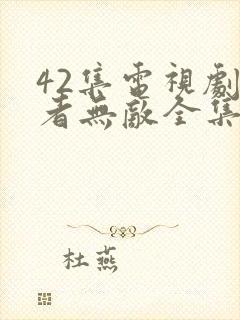 42集電視劇
者無敵全集
杜燕